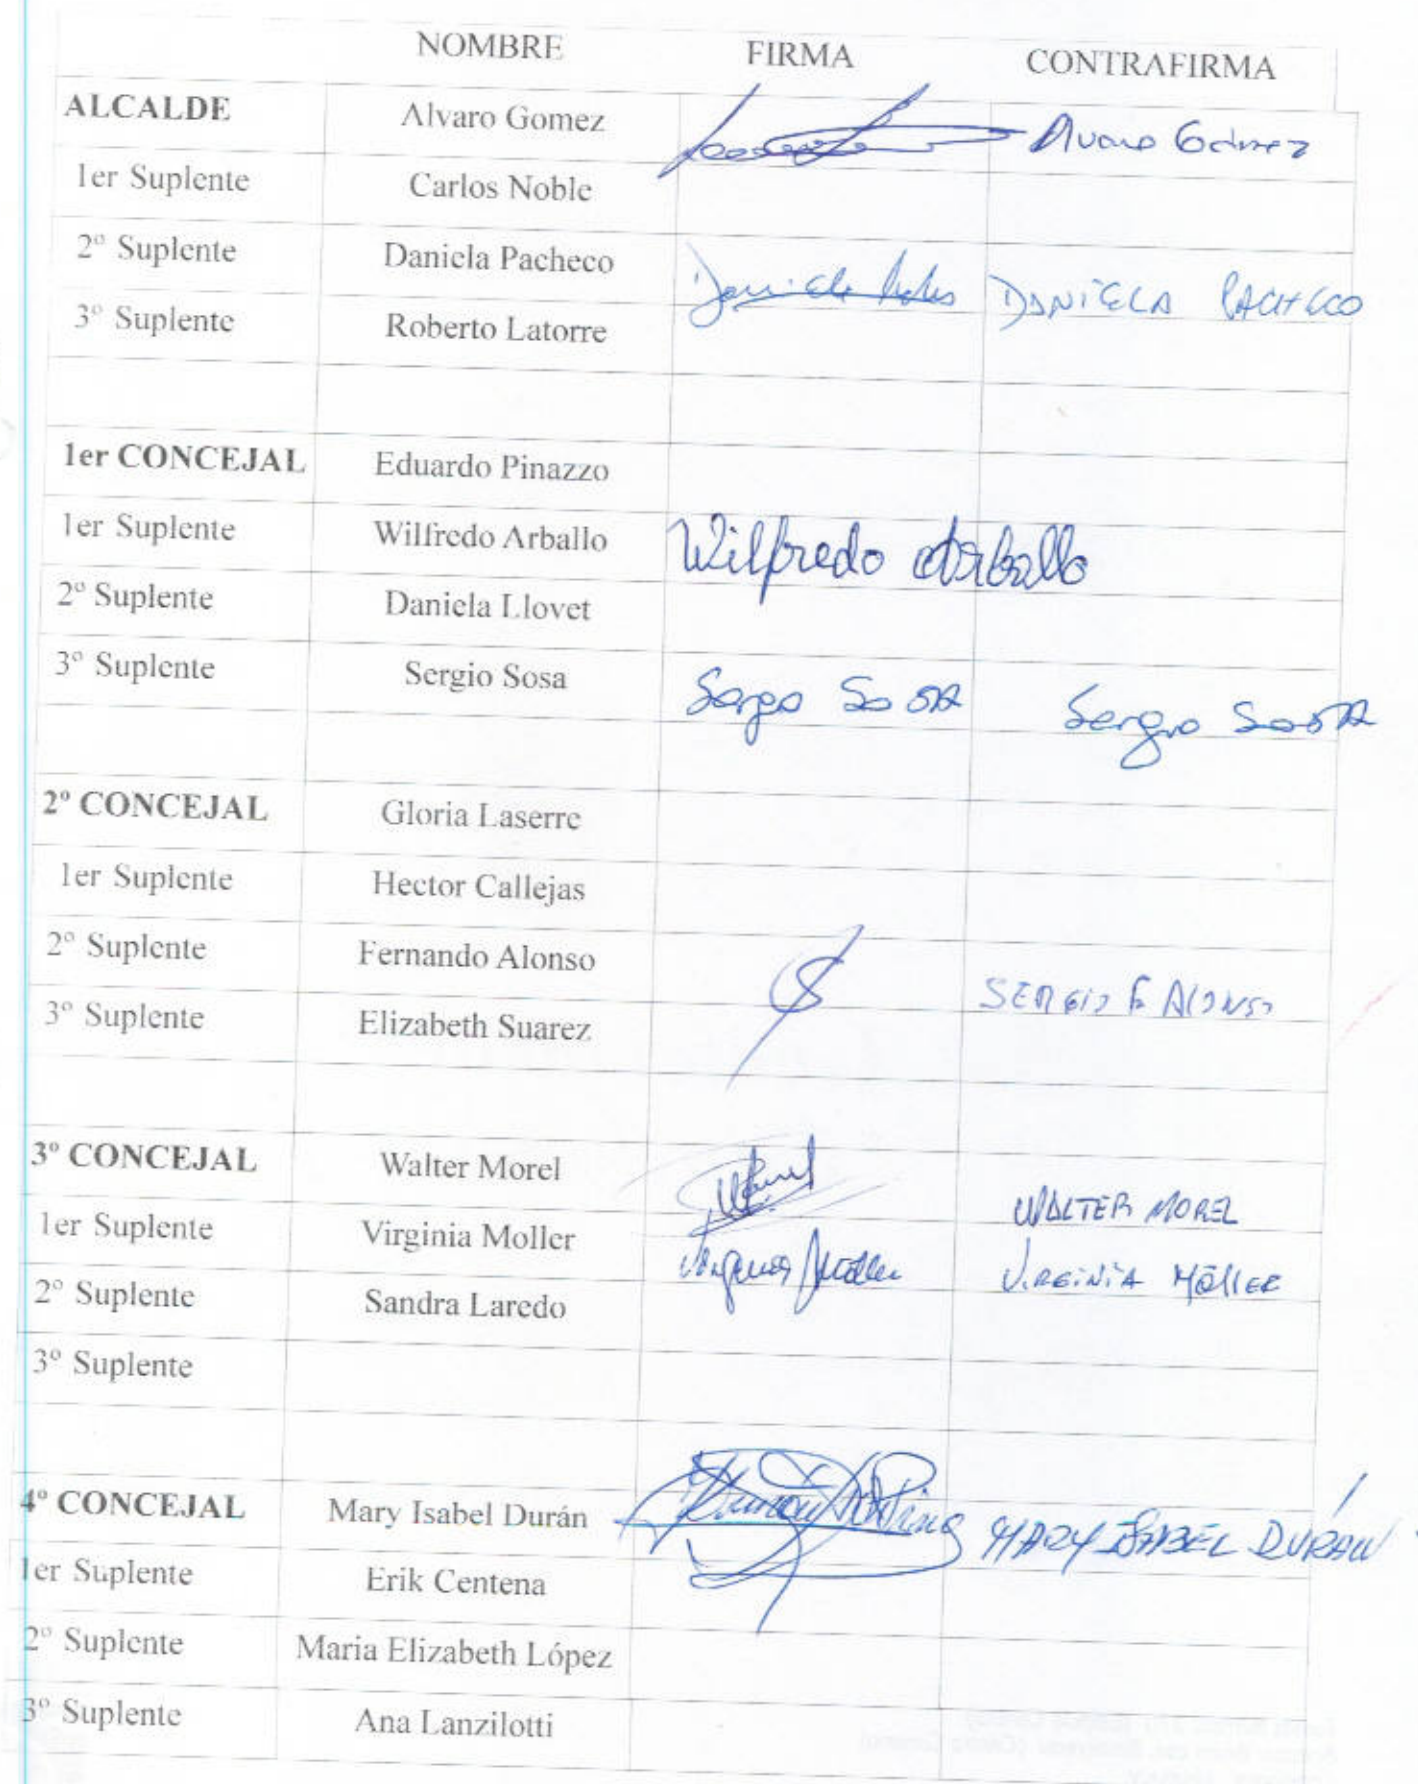 NOMBRE FIRMA CONTRAFIRMA
ALCALDE Alvaro Gomez Alvaro Gómez
1er Suplente Carlos Noble
2º Suplente Daniela Pacheco Daniela DANIELA PACHECO
3º Suplente Roberto Latorre
1er CONCEJAL Eduardo Pinazzo
1er Suplente Wilfredo Arballo Wilfredo Arballo
2º Suplente Daniela Llovet
3º Suplente Sergio Sosa Sergio Sosa Sergio Sosa
2º CONCEJAL Gloria Laserre
1er Suplente Hector Callejas
2º Suplente Fernando Alonso SERGIO F ALONSO
3º Suplente Elizabeth Suarez
3º CONCEJAL Walter Morel WALTER MOREL
1er Suplente Virginia Moller Virginia Möller VIRGINIA MÖLLER
2º Suplente Sandra Laredo
3º Suplente
4º CONCEJAL Mary Isabel Durán MARY ISABEL DURÁN
1er Suplente Erik Centena
2º Suplente Maria Elizabeth López
3º Suplente Ana Lanzilotti